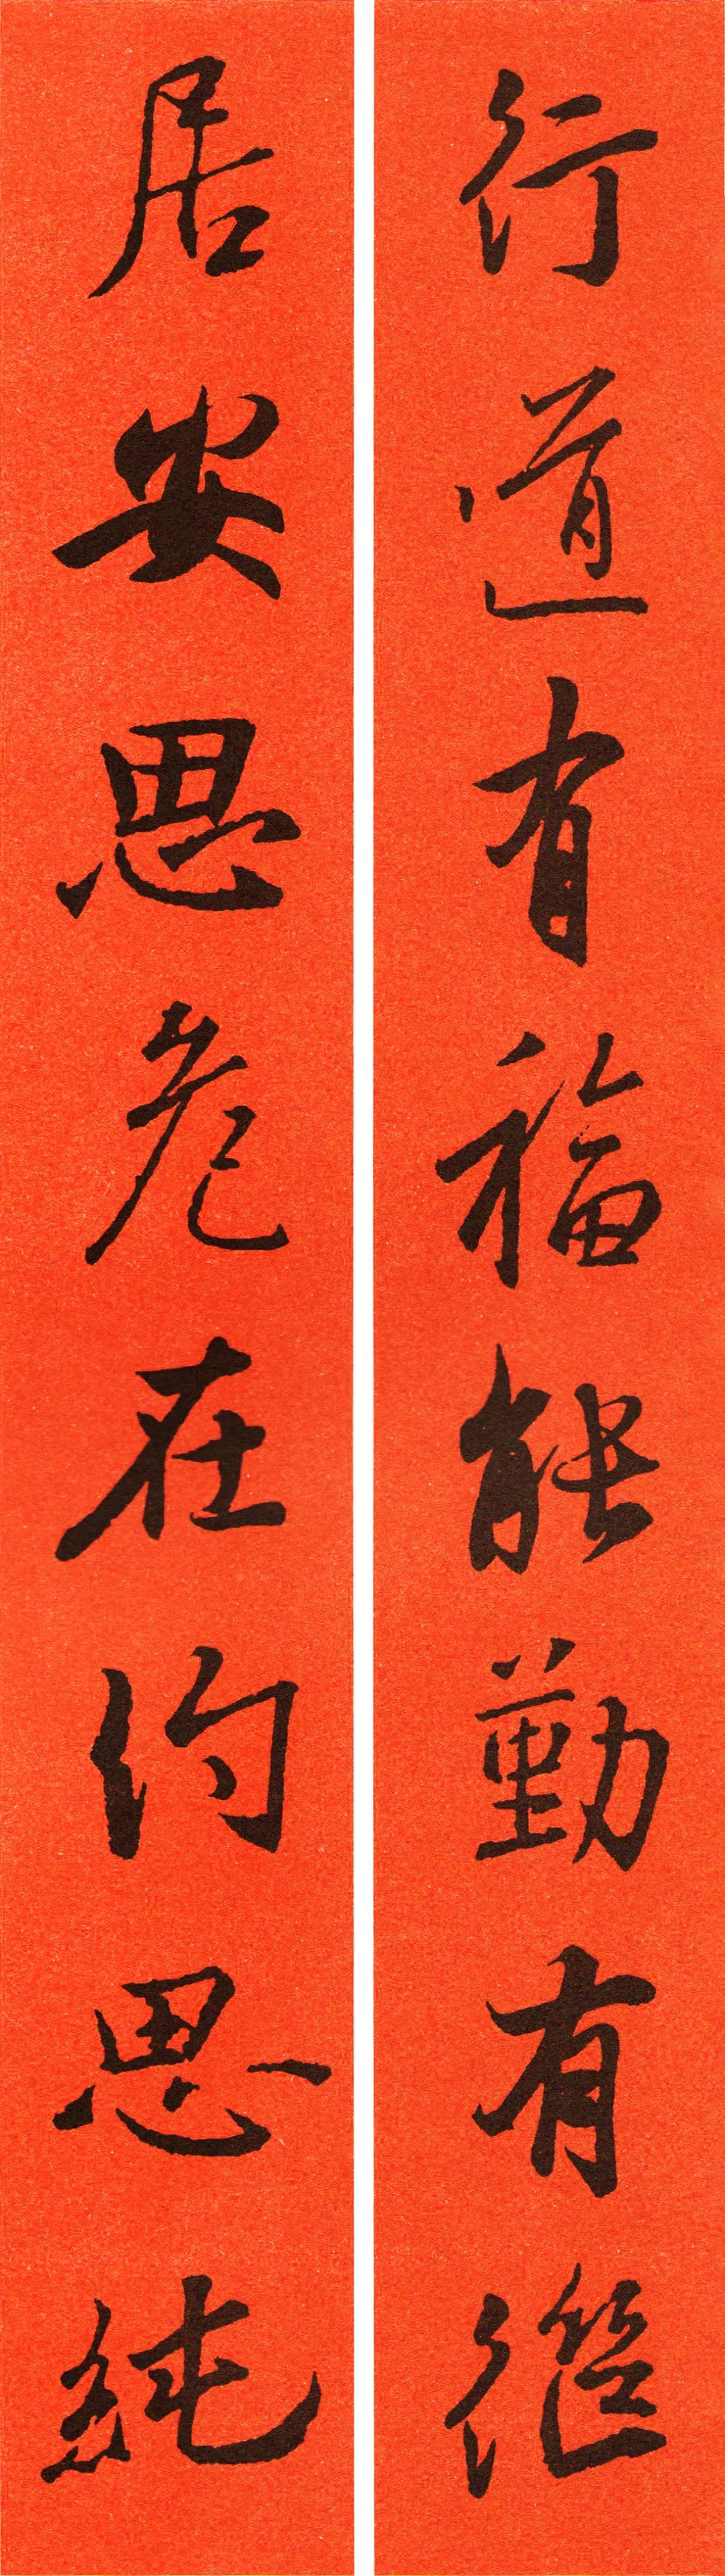 行道有福能勤有繼
居安思危在約思純